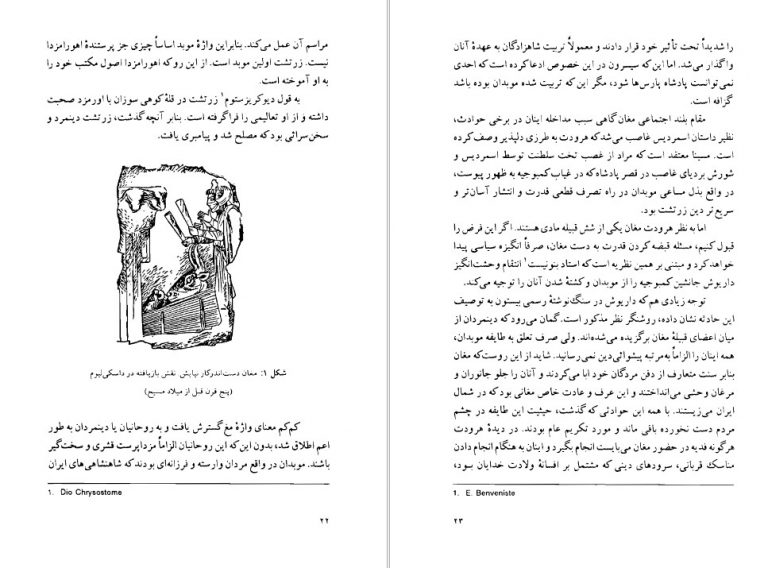 مراسم آن عمل می‌کند. بنابراین واژهٔ موبد اساساً چیزی جز پرستندهٔ اهورامزدا
نیست. زرتشت اولین موبد است. از این روکه اهورامزدا اصول مکتب خود را
به او آموخته است.
به قول دیوکریزستوم۱ زرتشت در قلهٔ کوهی سوزان با اورمزد صحبت
داشته و از او تعالیمی را فراگرفته است. بنابر آنچه گذشت، زرتشت دینمرد و
سخن‌سرائی بود که مصلح شد و پیامبری یافت.
شکل ۱: مغان دست‌اندرکار نیایش. نقش بازیافته در داسکی‌لیوم
(پنج قرن قبل از میلاد مسیح)
کم‌کم معنای واژهٔ مغ گسترش یافت و به روحانیان یا دینمردان به طور
اعم اطلاق شد، بدون این که این روحانیان الزاماً مزداپرست قشری و سخت‌گیر
باشند. موبدان در واقع مردان وارسته و فرزانه‌ای بودند که شاهنشاهی‌های ایران
1. Dio Chrysostome
۲۲
را شدیداً تحت تأثیر خود قرار دادند و معمولاً تربیت شاهزادگان به عهدهٔ آنان
واگذار می‌شد. اما این که سیسرون در این خصوص ادعا کرده است که احدی
نمی‌توانست پادشاه پارس‌ها شود، مگر این که تربیت شده موبدان بوده باشد
گزافه است.
مقام بلند اجتماعی مغان گاهی سبب مداخله اینان در برخی حوادث،
نظیر داستان اسمردیس غاصب می‌شد که هرودت به طرزی دلپذیر وصف کرده
است. مسینا معتقد است که مراد از غصب تخت سلطنت توسط اسمردیس و
شورش بردیای غاصب در قصر پادشاه که در غیاب کمبوجیه به ظهور پیوست،
در واقع بذل مساعی موبدان در راه تصرف قطعی قدرت و انتشار آسان‌تر و
سریع‌تر دین زرتشت بود.
اما به نظر هرودت مغان یکی از شش قبیله مادی هستند. اگر این فرض را
قبول کنیم، مسئله قبضه کردن قدرت به دست مغان، صرفاً انگیزه سیاسی پیدا
خواهد کرد و مبتنی بر همین نظریه است که استاد بنونیست۱ انتقام وحشت‌انگیز
داریوش جانشین کمبوجیه را از موبدان و کشتهٔ شدن آنان را توجیه می‌کند.
توجه زیادی هم که داریوش در سنگ‌نوشتهٔ رسمی بیستون به توصیف
این حادثه نشان داده، روشنگر نظر مذکور است. گمان می‌رود که دینمردان از
میان اعضای قبیلهٔ مغان برگزیده می‌شده‌اند. ولی صرف تعلق به طایفه موبدان،
همه اینان را الزاماً به مرتبه پیشوائی دین نمی‌رسانید. شاید از این روست که مغان
بنابر سنت متعارف از دفن مردگان خود ابا می‌کردند و آنان را جلو جانوران و
مرغان وحشی می‌انداختند و این عرف و عادت خاص مغانی بود که در شمال
ایران می‌زیستند. با همه این حوادثی که گذشت، حیثیت این طایفه در چشم
مردم دست نخورده باقی ماند و مورد تکریم عام بودند. در دیدهٔ هرودت
هرگونه فدیه در حضور مغان می‌بایست انجام بگیرد و اینان به هنگام انجام دادن
مناسک قربانی، سرودهای دینی که مشتمل بر افسانهٔ ولادت خدایان بود،
1. E. Benveniste
۲۳